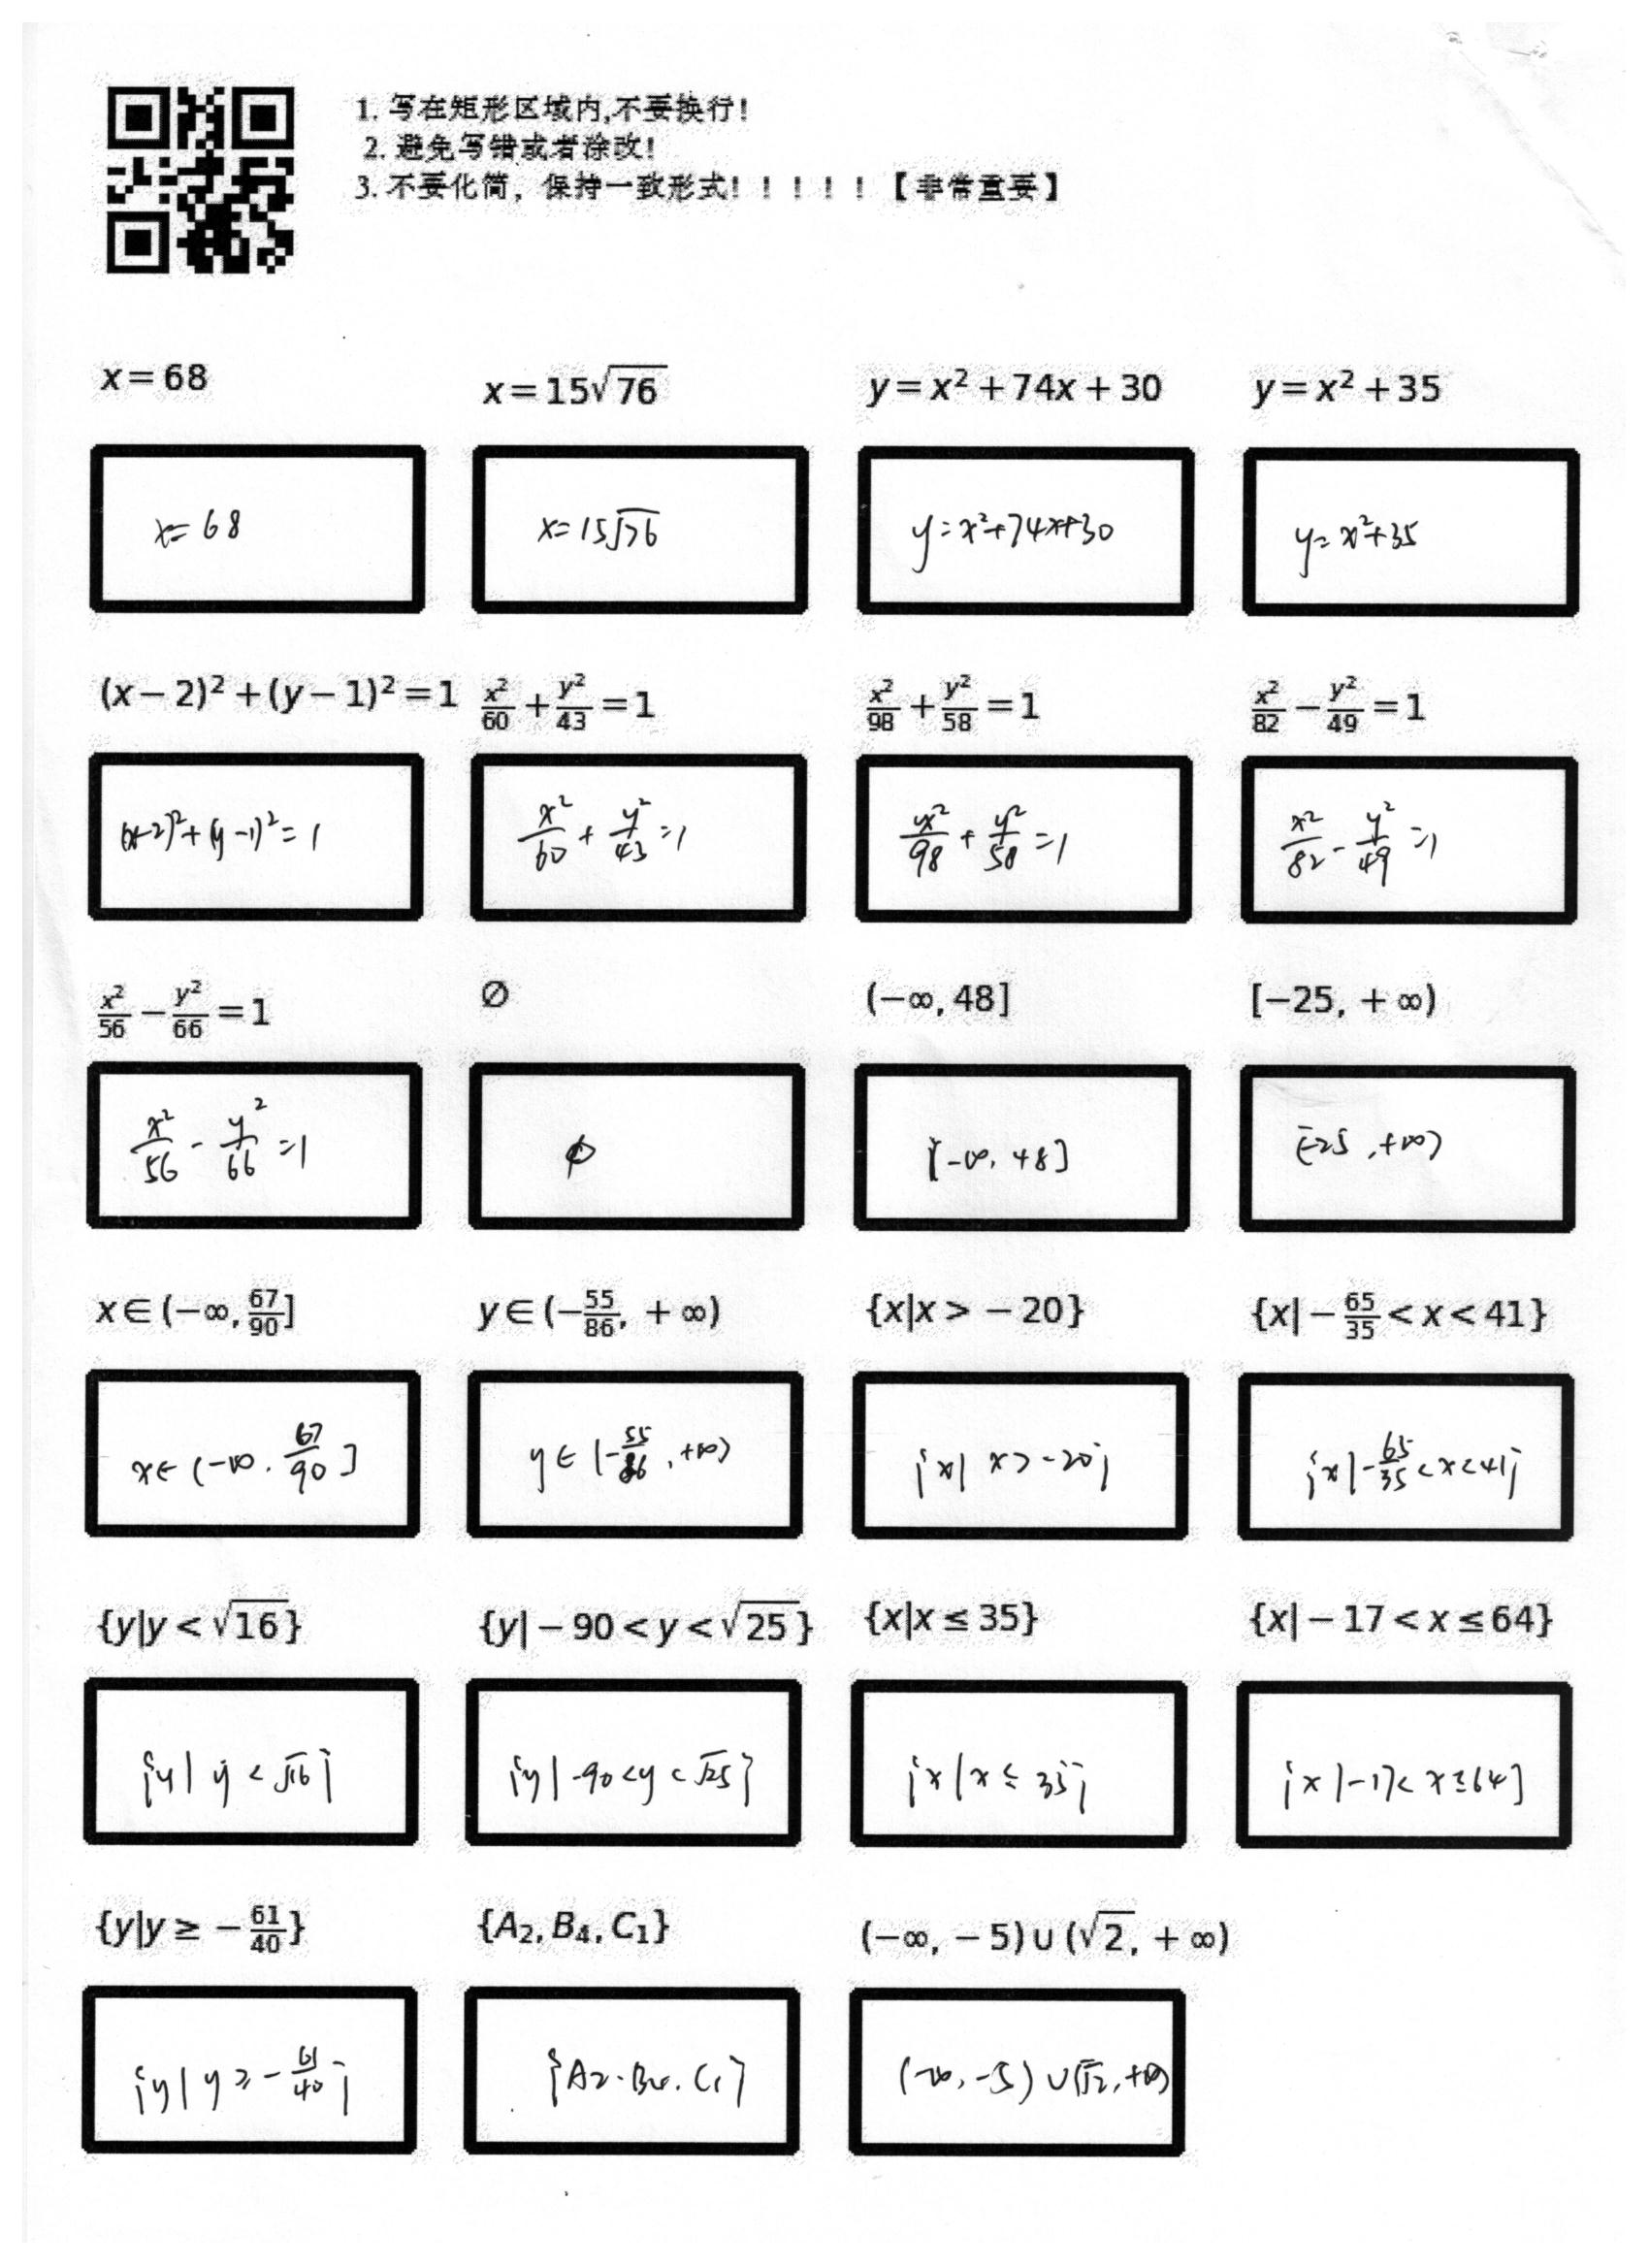 1. 写在矩形区域内,不要换行!
2. 避免写错或者涂改!
3. 不要化简，保持一致形式！！！！！【非常重要】
x = 68
x = 15√76
y = x² + 74x + 30
y = x² + 35
x = 68
x = 15√76
y = x² + 74x + 30
y = x² + 35
(x − 2)² + (y − 1)² = 1
x²/60 + y²/43 = 1
x²/98 + y²/58 = 1
x²/82 − y²/49 = 1
(x-2)² + (y-1)² = 1
x²/60 + y²/43 = 1
x²/98 + y²/58 = 1
x²/82 - y²/49 = 1
x²/56 − y²/66 = 1
∅
(−∞, 48]
[−25, +∞)
x²/56 - y²/66 = 1
∅
(-∞, 48]
[-25, +∞)
x ∈ (−∞, 67/90]
y ∈ (−55/86, +∞)
{x|x > −20}
{x|−65/35 < x < 41}
x ∈ (-∞, 67/90]
y ∈ (-55/86, +∞)
{x| x > -20}
{x|-65/35 < x < 41}
{y|y < √16}
{y|−90 < y < √25}
{x|x ≤ 35}
{x|−17 < x ≤ 64}
{y| y < √16}
{y|-90 < y < √25}
{x|x ≤ 35}
{x|-17 < x ≤ 64}
{y|y ≥ −61/40}
{A₂, B₄, C₁}
(−∞, −5) ∪ (√2, +∞)
{y| y ≥ -61/40}
{A₂, B₄, C₁}
(-∞, -5) ∪ (√2, +∞)